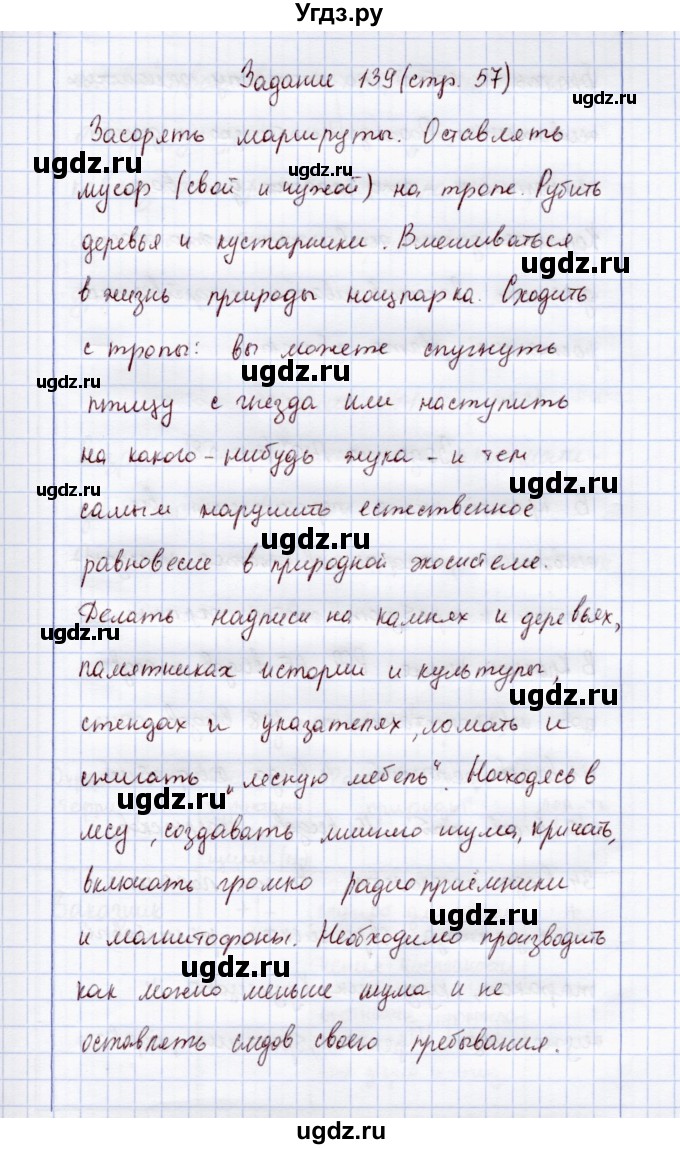 Угдз.ру
Задание 139 (стр. 57)
ugdz.ru
Засорять маршруты. Оставлять
ugdz.ru
ugdz.ru
мусор (свой и чужой) на тропе. Рубить
деревья и кустарники. Вмешиваться
ugdz.ru
в жизнь природы нацпарка. Сходить
с тропы: вы можете спугнуть
ugdz.ru
ugdz.ru
птицу с гнезда или наступить
на какого-нибудь жука - и тем
ugdz.ru
ugdz.ru
самым нарушить естественное
ugdz.ru
равновесие в природной экосистеме.
Делать надписи на камнях и деревьях,
ugdz.ru
памятниках истории и культуры,
ugdz.ru
стендах и указателях, ломать и
сжигать „лесную мебель“. Находясь в
ugdz.ru
лесу, создавать лишнего шума, кричать,
включать громко радиоприёмники
ugdz.ru
и магнитофоны. Необходимо производить
ugdz.ru
как можно меньше шума и не
оставлять следов своего пребывания.
ugdz.ru